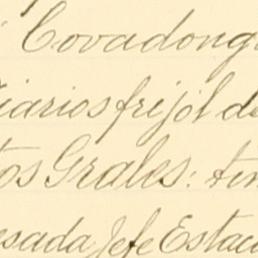 Covadonga
diarios frijol de
tos Grales: tin
esada Jefe Estac